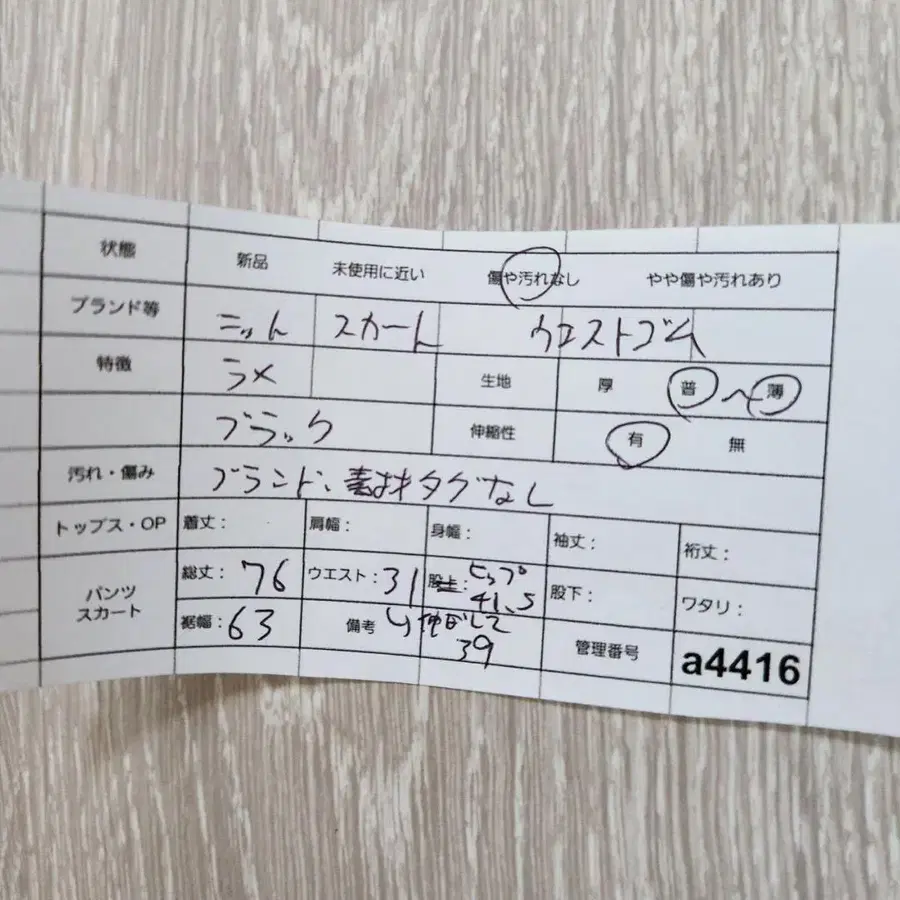 状態 新品 未使用に近い 傷や汚れなし やや傷や汚れあり
ブランド等 ニット スカート ウエストゴム
特徴 ラメ 生地 厚 普 〜 薄
ブラック 伸縮性 有 無
汚れ・傷み ブランド、素材タグなし
トップス・OP 着丈： 肩幅： 身幅： 袖丈： 裄丈：
パンツ スカート 総丈：76 ウエスト：31 ヒップ 41.5 股下： ワタリ：
裾幅：63 備考 伸ばして 39 管理番号 a4416